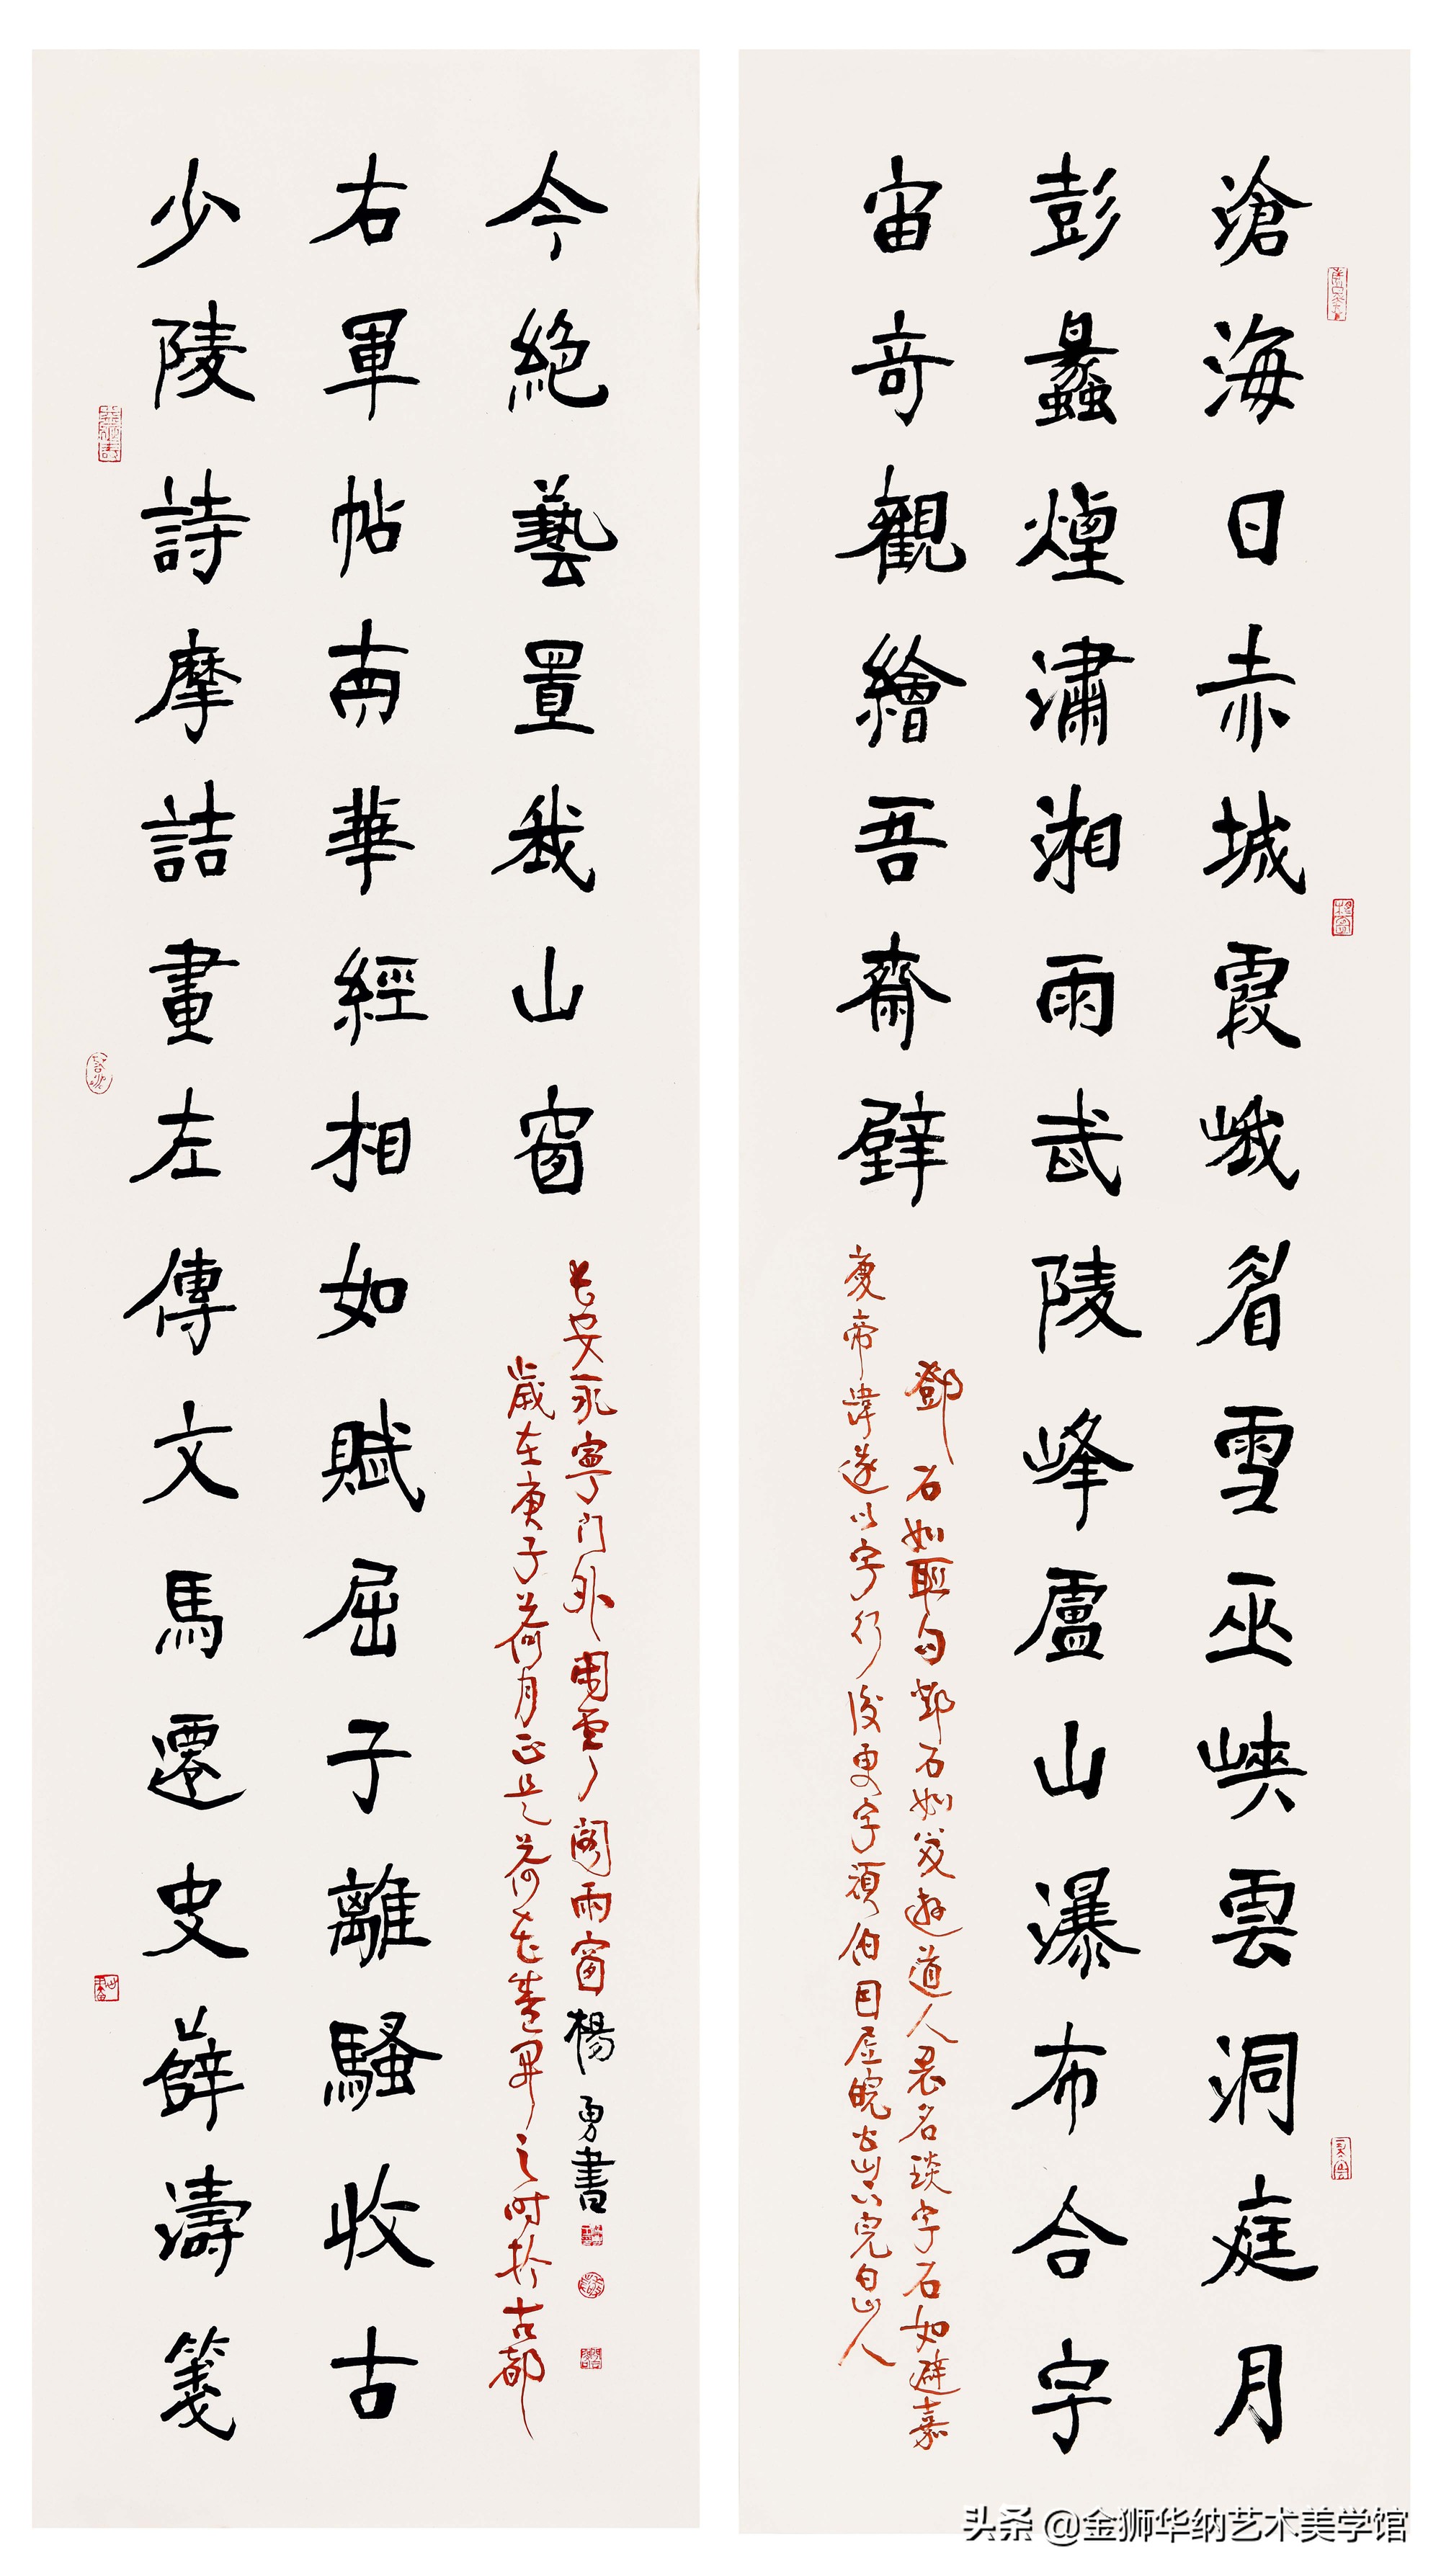 滄海日赤城霞峨眉雪巫峽雲洞庭月
彭蠡煙瀟湘雨武陵峰廬山瀑布合宇
宙奇觀繪吾齋壁
鄧石如聯句鄧石如笈遊道人原名琰字石如避嘉
慶帝諱遂以字行後更字頑伯因居皖公山下完白山人
少陵詩摩詰畫左傳文馬遷史薛濤箋
右軍帖南華經相如賦屈子離騷收古
今絕藝置我山窗
長安永寧門外雲閣雨窗楊勇書
歲在庚子荷月正是荷花盛開之時於古都
头条 @金狮华纳艺术美学馆